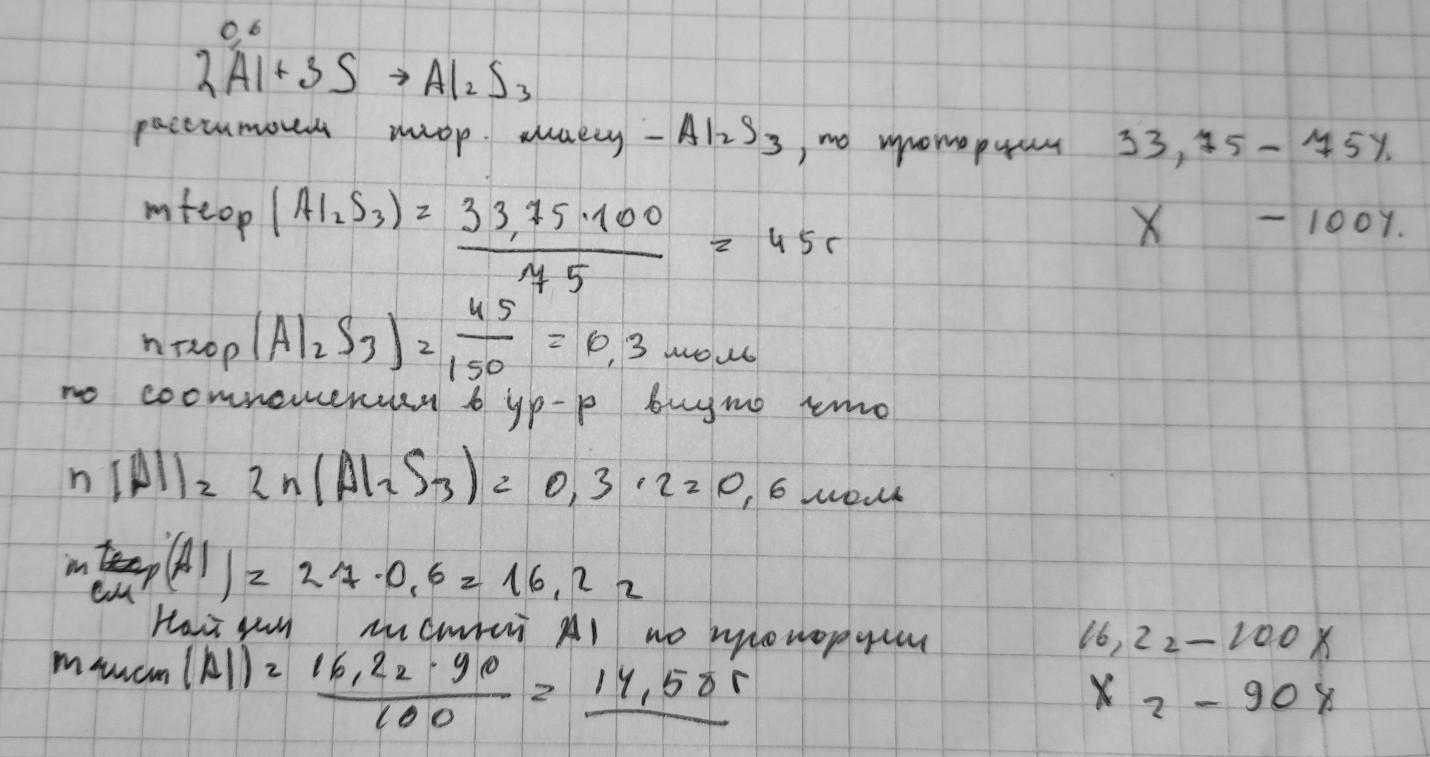 0,6
2Al + 3S → Al₂S₃
рассчитаем теор. массу - Al₂S₃, по пропорции 33,75 - 75%
mтеор (Al₂S₃) = 33,75·100 / 75 = 45г X - 100%.
nтеор (Al₂S₃) = 45 / 150 = 0,3 моль
по соотношениям в ур-р видно что
n (Al) = 2n (Al₂S₃) = 0,3 · 2 = 0,6 моль
mсм (Al) = 27·0,6 = 16,2 г
Найдем чистый Al по пропорции 16,2г - 100%
mчист (Al) = 16,2г · 90 / 100 = 14,58г X г - 90%